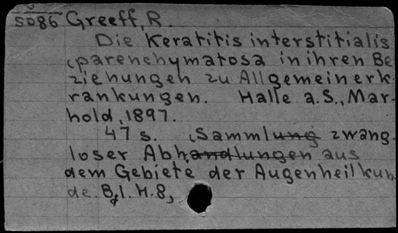 5086 Greeff, R.
Die Keratitis interstitialis
(parenchymatosa in ihren Be
ziehungen zu Allgemeinerk
rankungen. Halle a.S., Mar-
hold, 1897.
47 s. (Sammlung zwang-
loser Abhandlungen aus
dem Gebiete der Augenheilkun
de. Bd. I. H. 8,